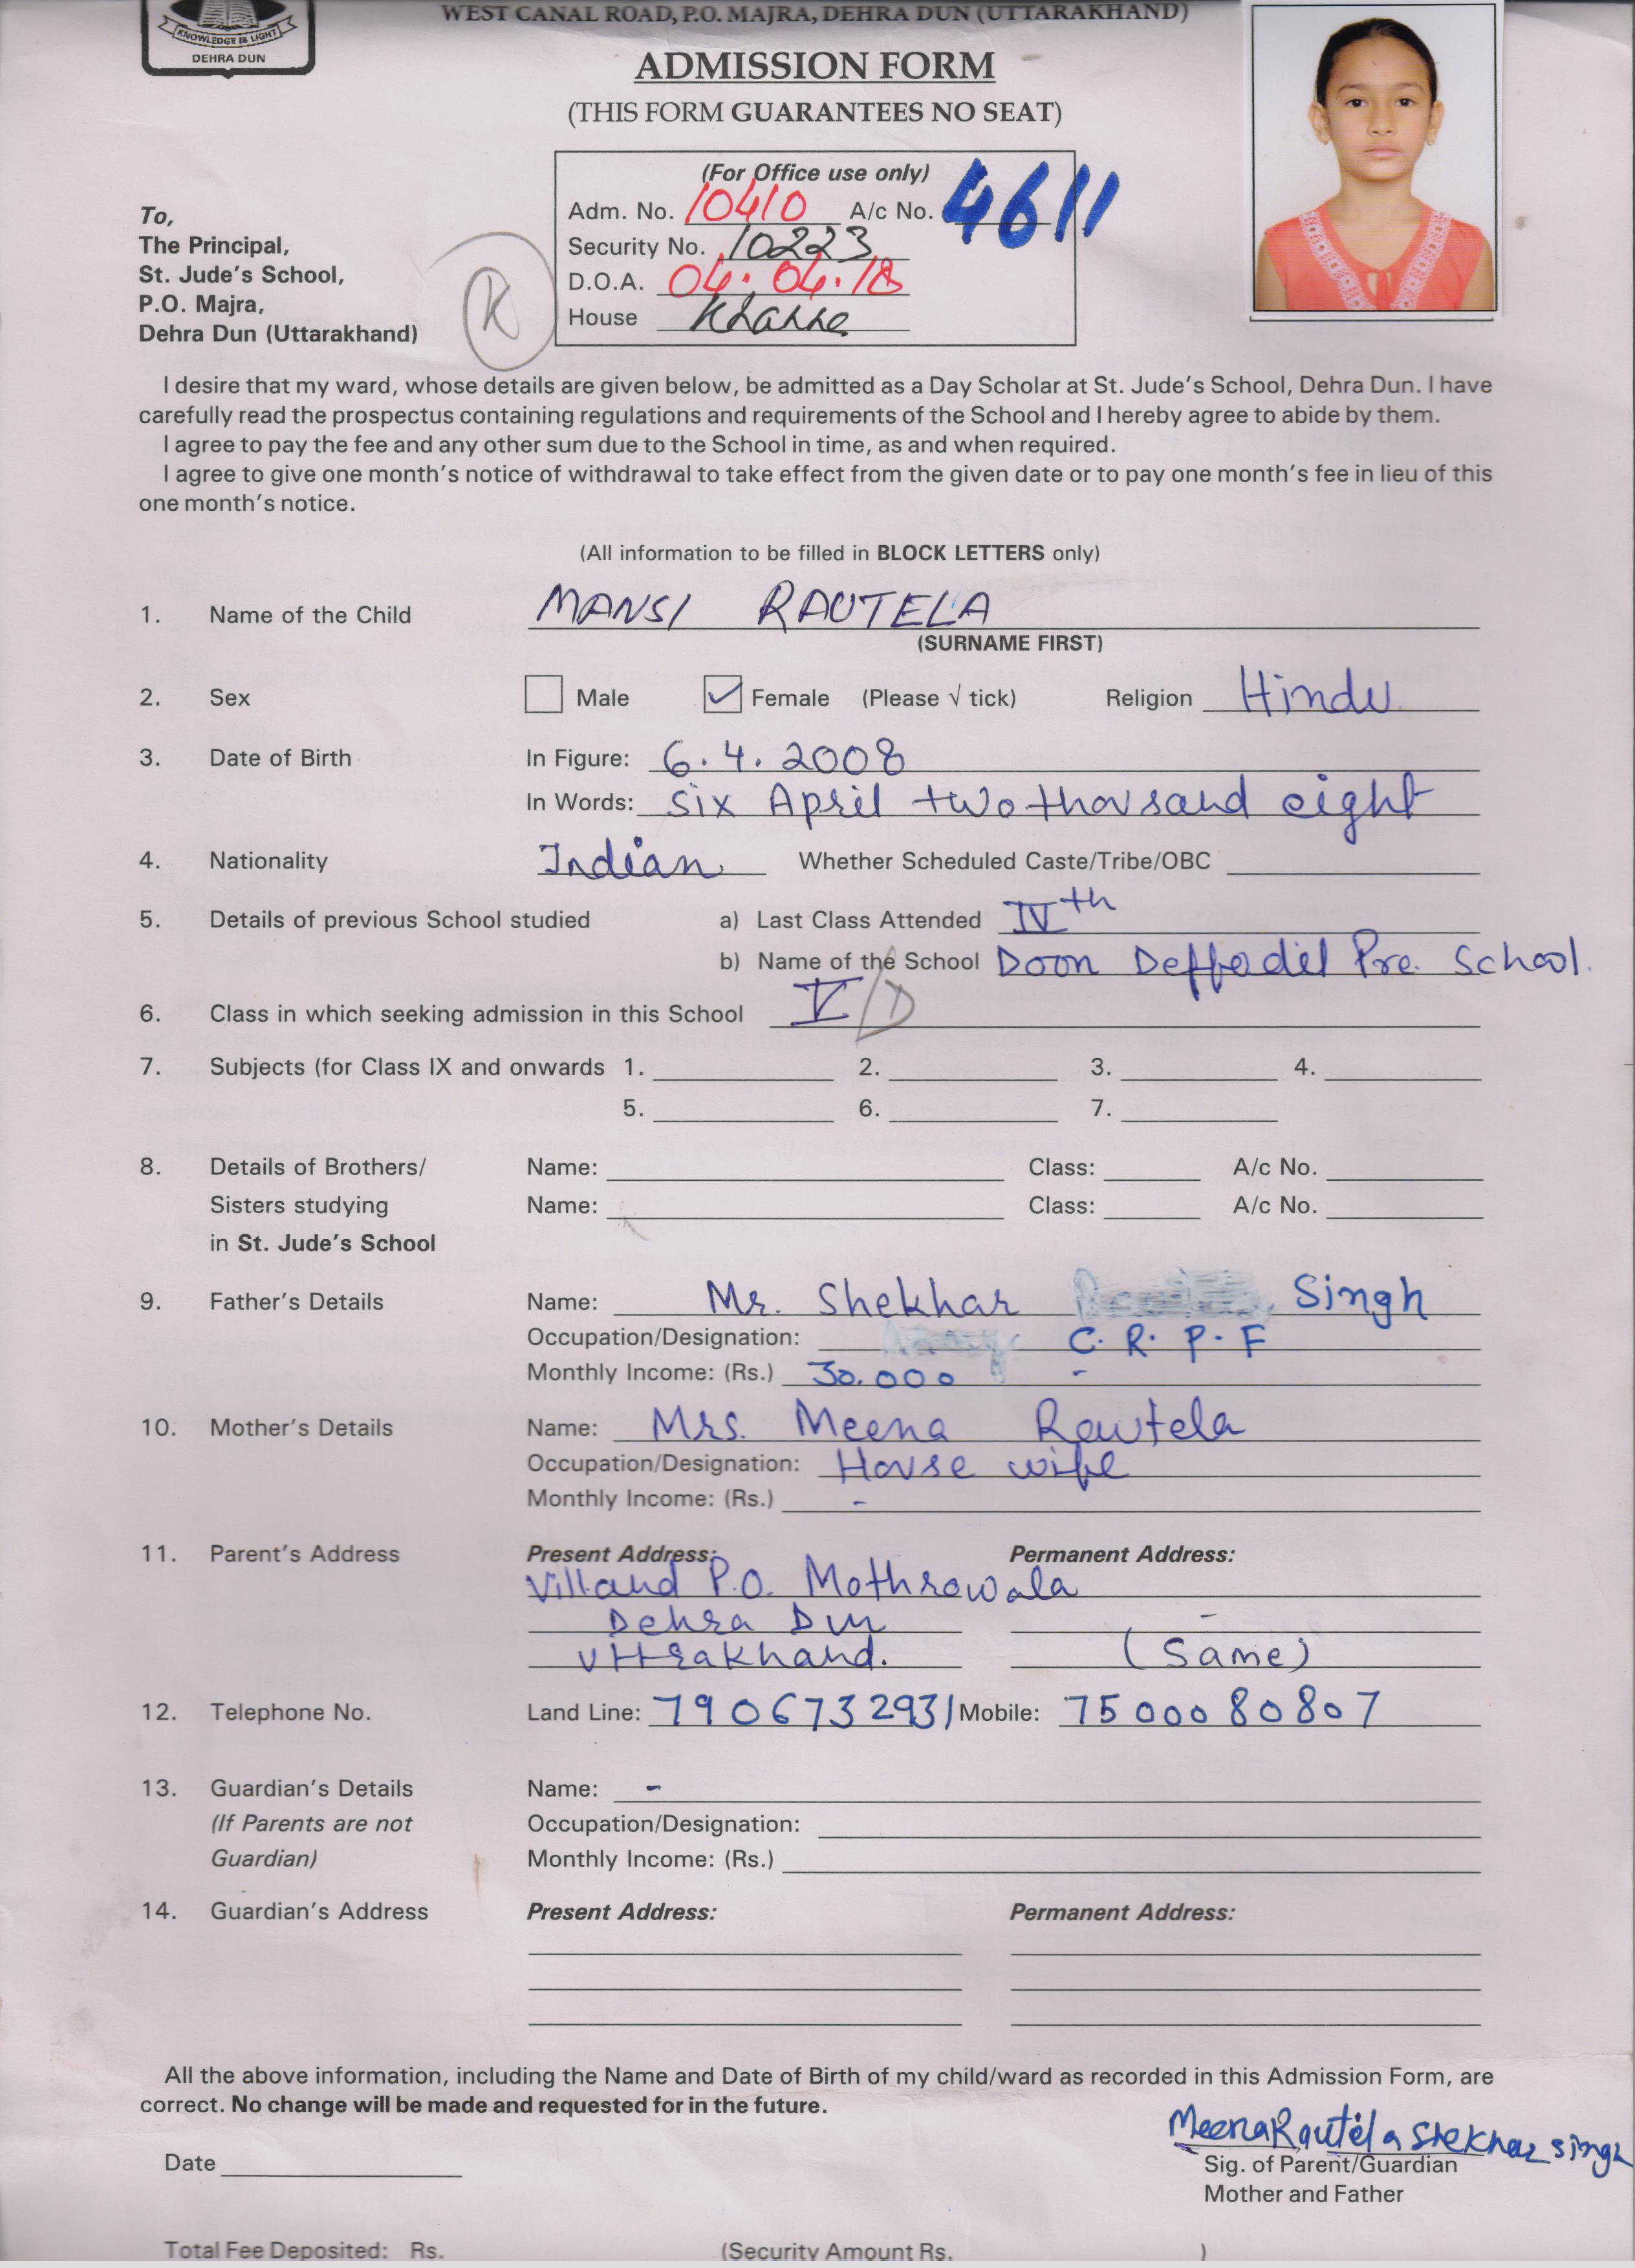 WEST CANAL ROAD, P.O. MAJRA, DEHRA DUN (UTTARAKHAND)
KNOWLEDGE IS LIGHT
DEHRA DUN
ADMISSION FORM
(THIS FORM GUARANTEES NO SEAT)
(For Office use only)
Adm. No. 10410 A/c No. 4611
Security No. 10223
D.O.A. 04.04.18
House
K
To,
The Principal,
St. Jude's School,
P.O. Majra,
Dehra Dun (Uttarakhand)
I desire that my ward, whose details are given below, be admitted as a Day Scholar at St. Jude's School, Dehra Dun. I have
carefully read the prospectus containing regulations and requirements of the School and I hereby agree to abide by them.
I agree to pay the fee and any other sum due to the School in time, as and when required.
I agree to give one month's notice of withdrawal to take effect from the given date or to pay one month's fee in lieu of this
one month's notice.
(All information to be filled in BLOCK LETTERS only)
1. Name of the Child MANSI RAUTELA
(SURNAME FIRST)
2. Sex Male ✓ Female (Please √ tick) Religion Hindu
3. Date of Birth In Figure: 6.4.2008
In Words: six April two thousand eight
4. Nationality Indian Whether Scheduled Caste/Tribe/OBC
5. Details of previous School studied a) Last Class Attended IVth
b) Name of the School Doon Deffodil Pre. School.
6. Class in which seeking admission in this School V/D
7. Subjects (for Class IX and onwards 1. 2. 3. 4.
5. 6. 7.
8. Details of Brothers/ Name: Class: A/c No.
Sisters studying Name: Class: A/c No.
in St. Jude's School
9. Father's Details Name: Mr. Shekhar Singh
Occupation/Designation: C.R.P.F
Monthly Income: (Rs.) 30.000 -
10. Mother's Details Name: Mrs. Meena Rautela
Occupation/Designation: House wife
Monthly Income: (Rs.) -
11. Parent's Address Present Address: Permanent Address:
Vill and P.O. Mothrowala
Dehra Dun -
Uttrakhand. (Same)
12. Telephone No. Land Line: 7906732931 Mobile: 7500080807
13. Guardian's Details Name: -
(If Parents are not Occupation/Designation:
Guardian) Monthly Income: (Rs.)
14. Guardian's Address Present Address: Permanent Address:
All the above information, including the Name and Date of Birth of my child/ward as recorded in this Admission Form, are
correct. No change will be made and requested for in the future.
Meena Rautela Shekhar Singh
Date Sig. of Parent/Guardian
Mother and Father
Total Fee Deposited: Rs. (Security Amount Rs. )